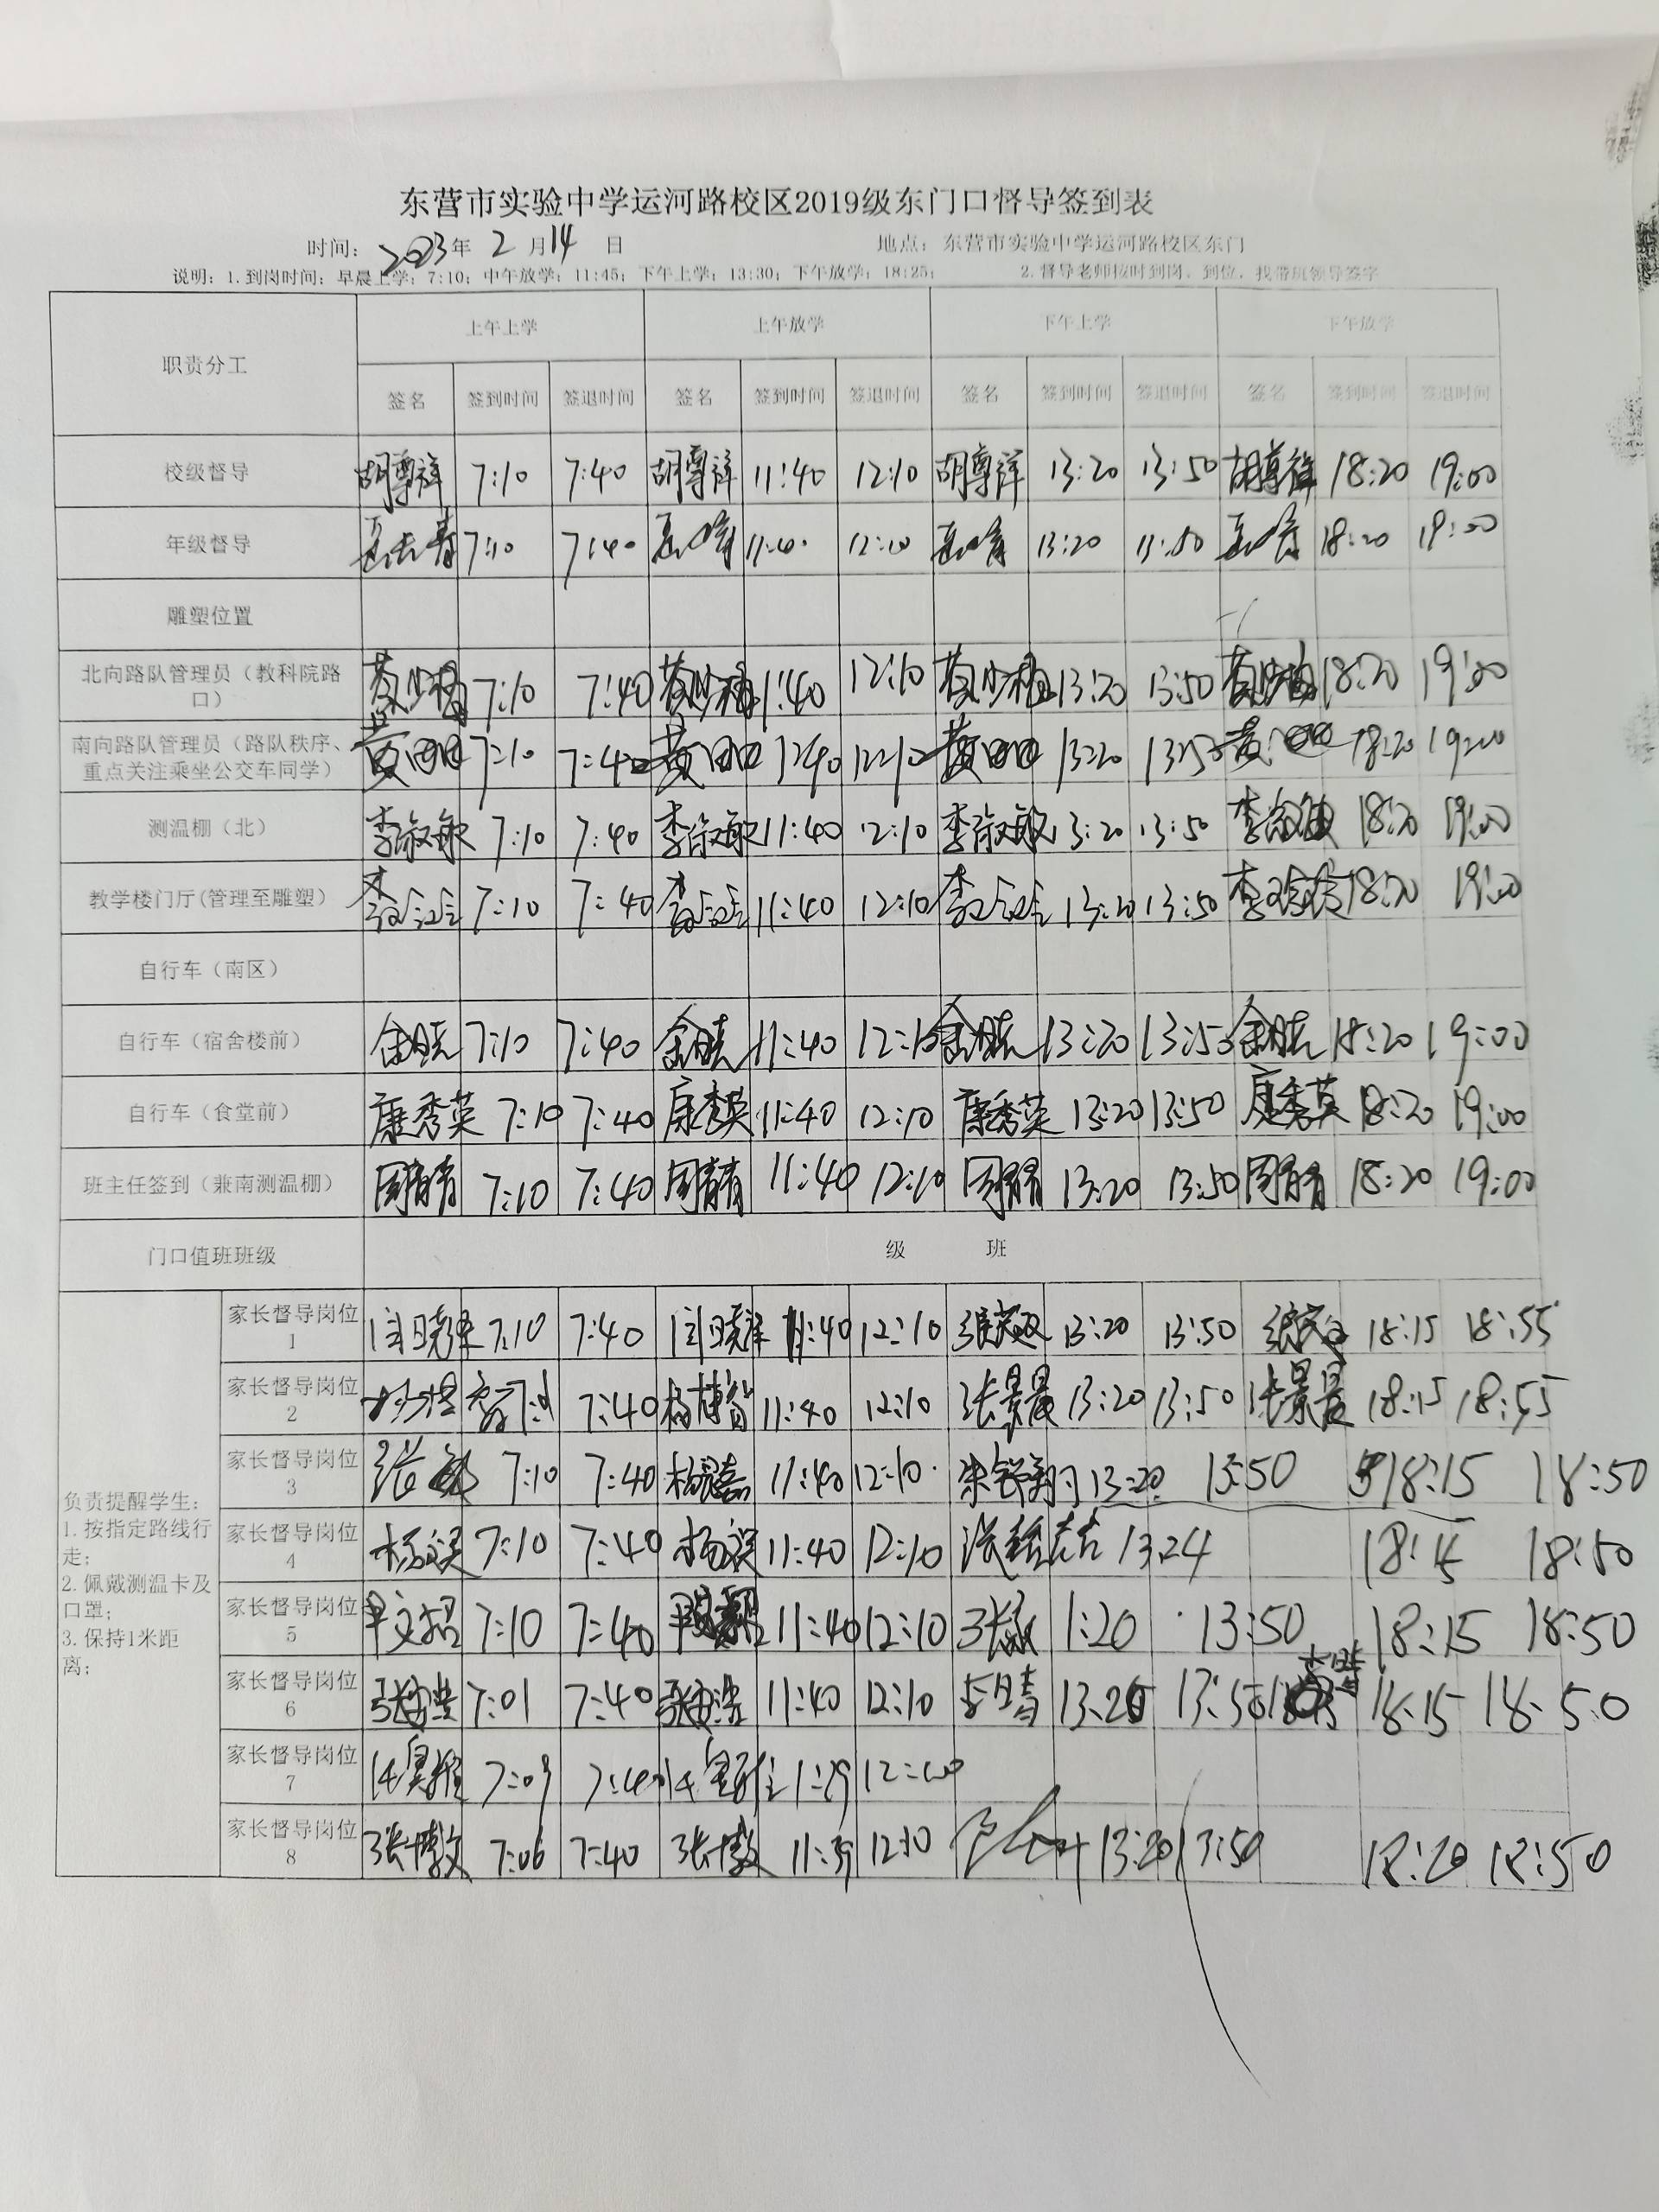 东营市实验中学运河路校区2019级东门口督导签到表
时间：2023年 2 月 14 日 地点：东营市实验中学运河路校区东门
说明：1.到岗时间：早晨上学：7:10；中午放学：11:45；下午上学：13:30；下午放学：18:25； 2.督导老师按时到岗、到位，找带班领导签字
职责分工 上午上学 上午放学 下午上学 下午放学
签名 签到时间 签退时间 签名 签到时间 签退时间 签名 签到时间 签退时间 签名 签到时间 签退时间
校级督导 胡尊祥 7:10 7:40 胡尊祥 11:40 12:10 胡尊祥 13:20 13:50 胡尊祥 18:20 19:00
年级督导 7:10 7:40 11:40 12:10 13:20 13:50 18:20 19:00
雕塑位置
北向路队管理员（教科院路
口） 7:10 7:40 11:40 12:10 13:20 13:50 18:20 19:00
南向路队管理员（路队秩序、
重点关注乘坐公交车同学） 7:10 7:40 12:10 13:20 13:50 18:20 19:00
测温棚（北） 李淑敏 7:10 7:40 李淑敏 11:40 12:10 李淑敏 13:20 13:50 李淑敏 18:20 19:00
教学楼门厅(管理至雕塑） 7:10 7:40 11:40 12:10 13:20 13:50 18:20 19:00
自行车（南区）
自行车（宿舍楼前） 7:10 7:40 11:40 12:10 13:20 13:50 18:20 19:00
自行车（食堂前） 康秀英 7:10 7:40 康秀英 11:40 12:10 康秀英 13:20 13:50 康秀英 18:20 19:00
班主任签到（兼南测温棚） 周青青 7:10 7:40 周青青 11:40 12:10 周青青 13:20 13:50 周青青 18:20 19:00
门口值班班级 级 班
负责提醒学生：
1.按指定路线行
走；
2.佩戴测温卡及
口罩；
3.保持1米距
离；
家长督导岗位
1 7:10 7:40 11:40 12:10 13:20 13:50 18:15 18:55
家长督导岗位
2 7:40 杨博智 11:40 12:10 张景晨 13:20 13:50 张景晨 18:15 18:55
家长督导岗位
3 7:10 7:40 11:40 12:10 13:20 13:50 18:15 18:50
家长督导岗位
4 7:10 7:40 11:40 12:10 13:24 18:15 18:50
家长督导岗位
5 7:10 7:40 11:40 12:10 1:20 13:50 18:15 18:50
家长督导岗位
6 7:01 7:40 11:40 12:10 李晴 13:20 13:50 李晴 18:15 18:50
家长督导岗位
7 7:09 7:40
家长督导岗位
8 张博文 7:06 7:40 张博文 11:39 12:10 13:20 13:50 18:20 18:50